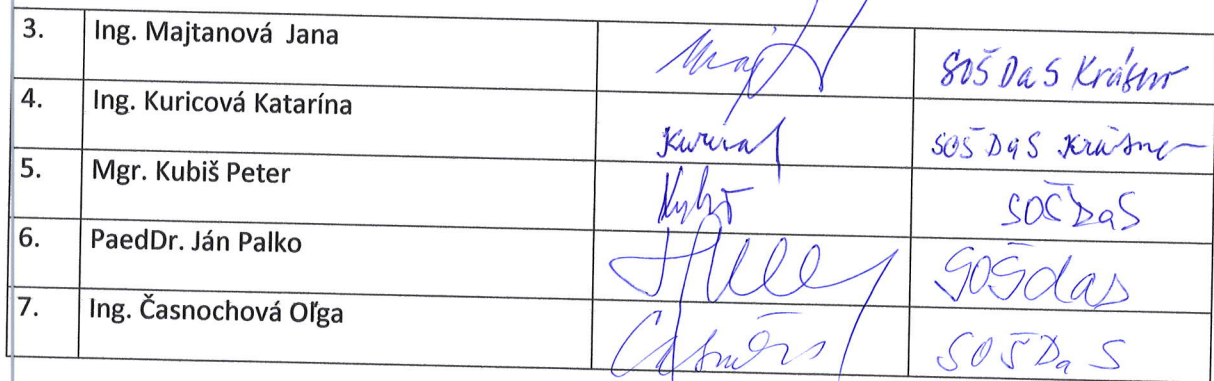 3. Ing. Majtanová Jana SOŠ DaS Krásno
4. Ing. Kuricová Katarína SOŠ DaS Krásno
5. Mgr. Kubiš Peter SOŠ DaS
6. PaedDr. Ján Palko SOŠ das
7. Ing. Časnochová Oľga SOŠ DaS